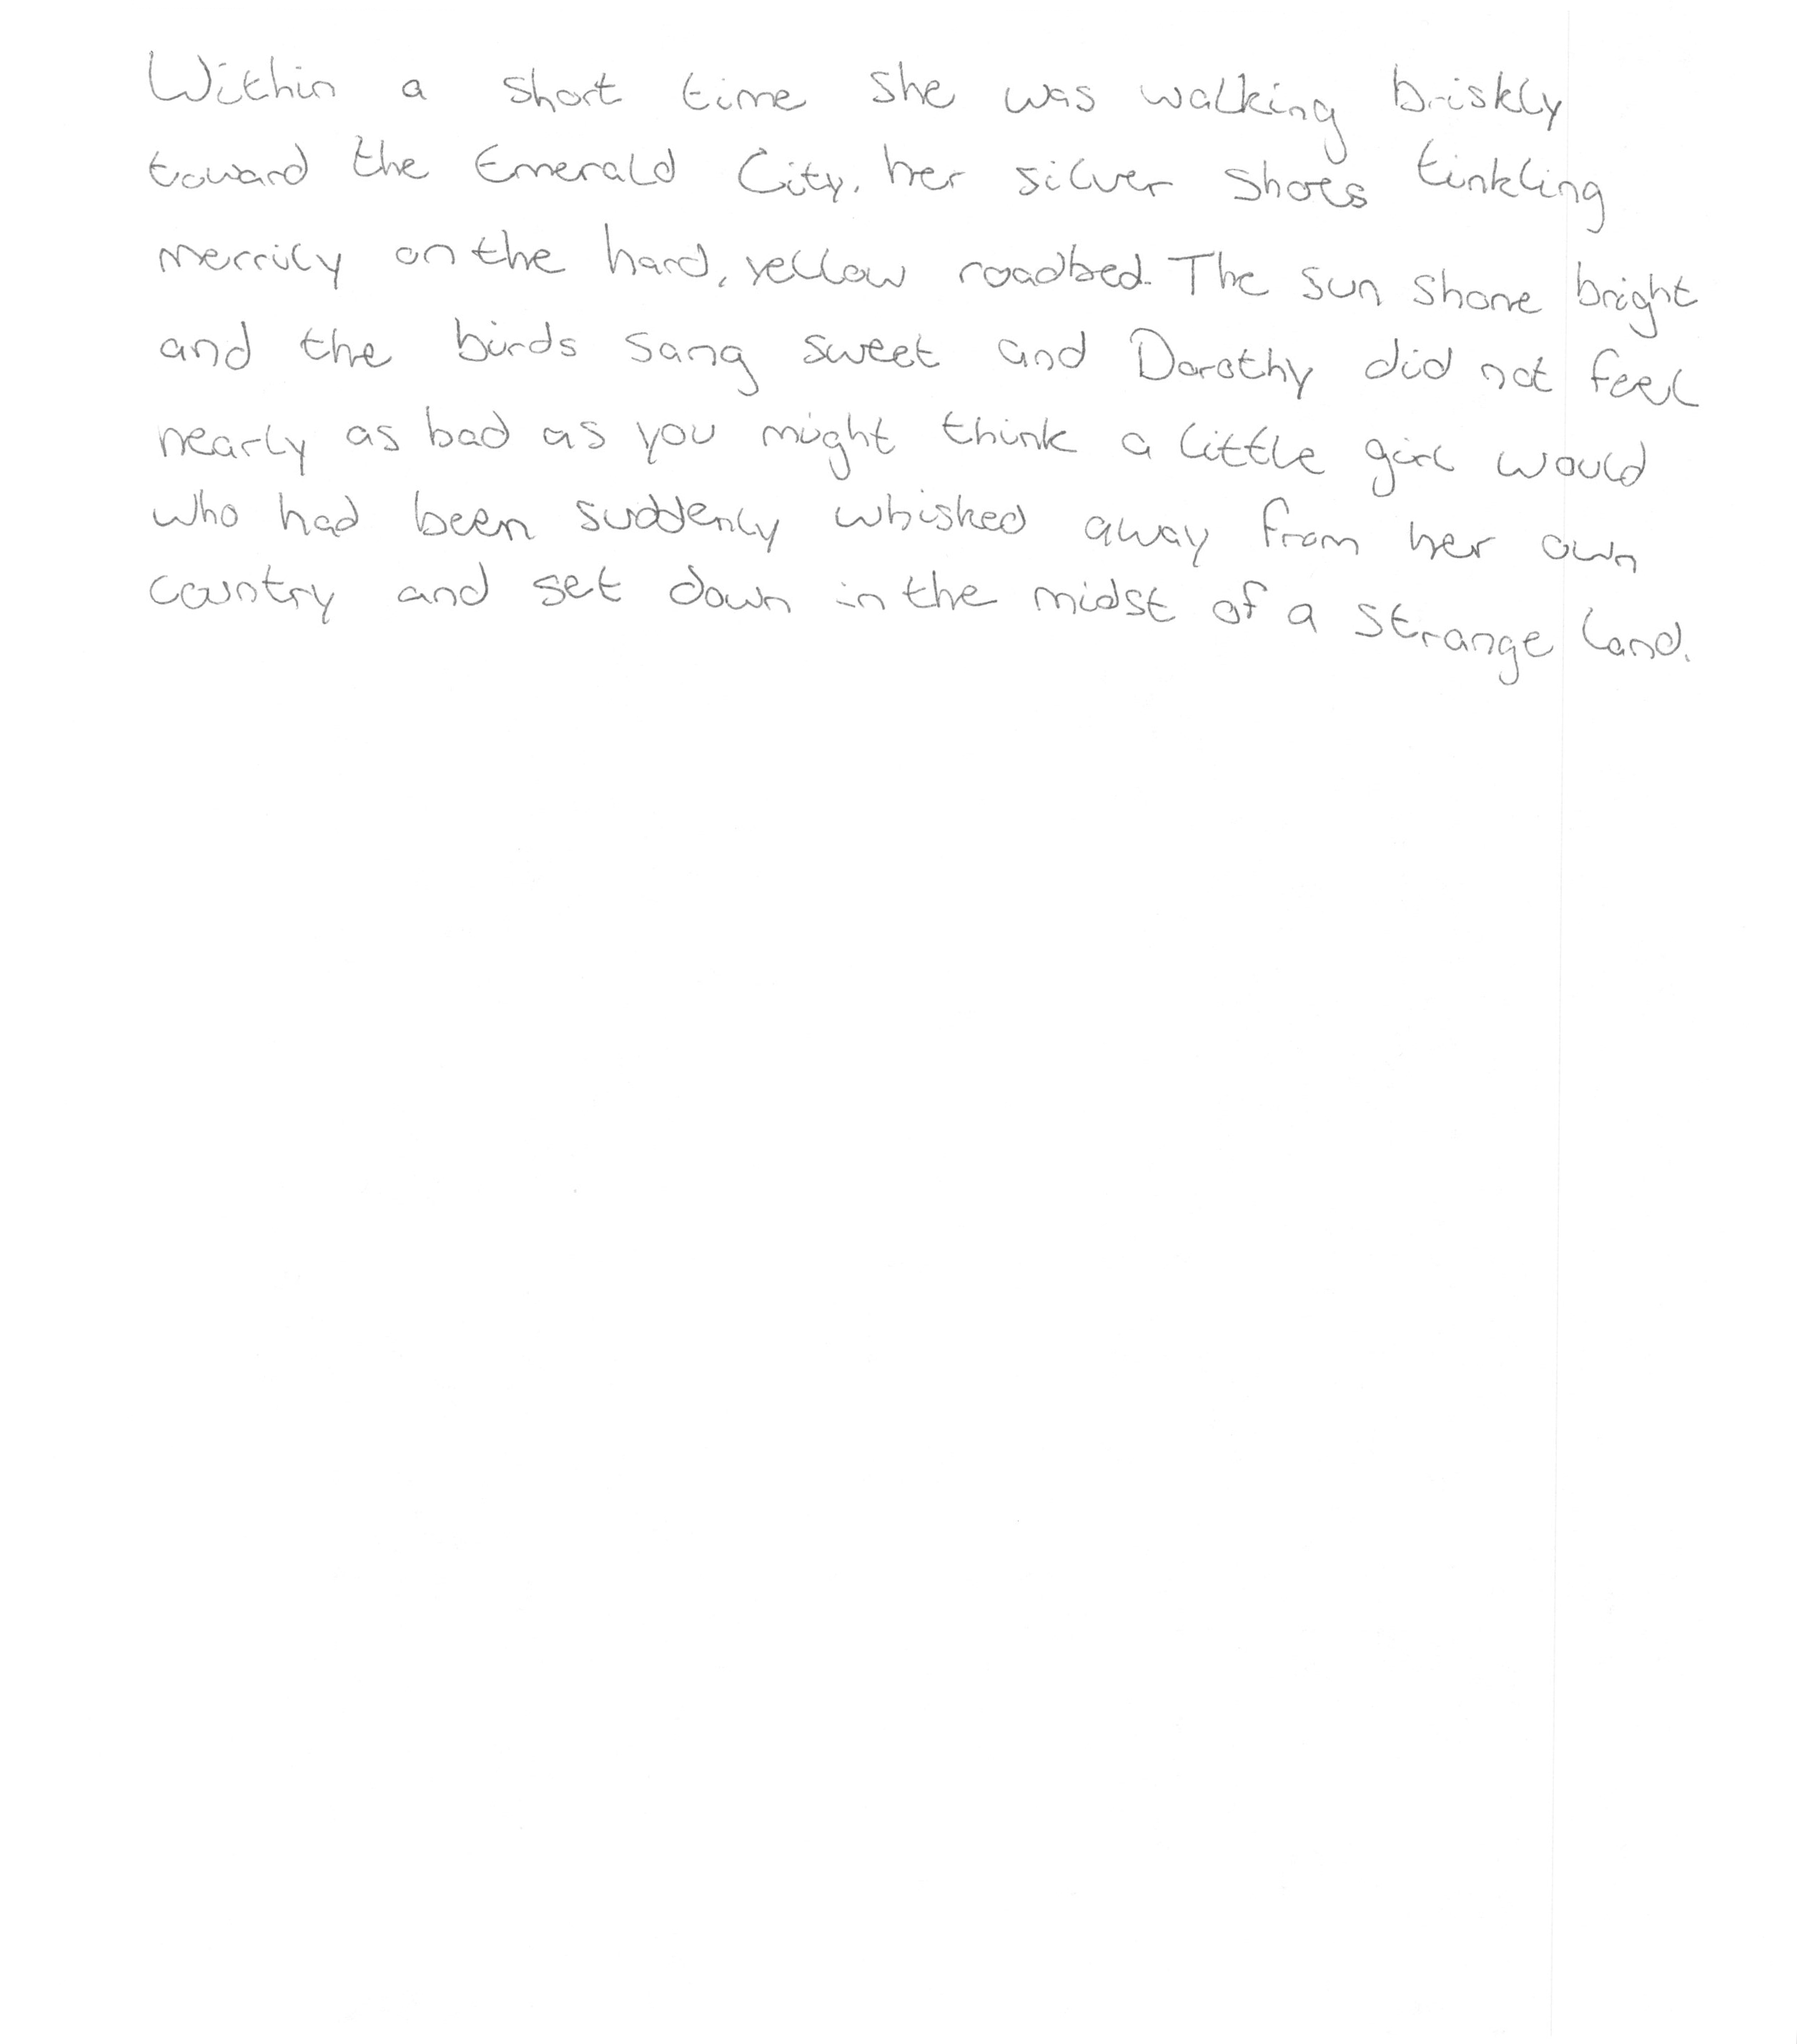 Within a short time she was walking briskly
toward the Emerald City, her silver shoes tinkling
merrily on the hard, yellow roadbed. The sun shone bright
and the birds sang sweet and Dorothy did not feel
nearly as bad as you might think a little girl would
who had been suddenly whisked away from her own
country and set down in the midst of a strange land.